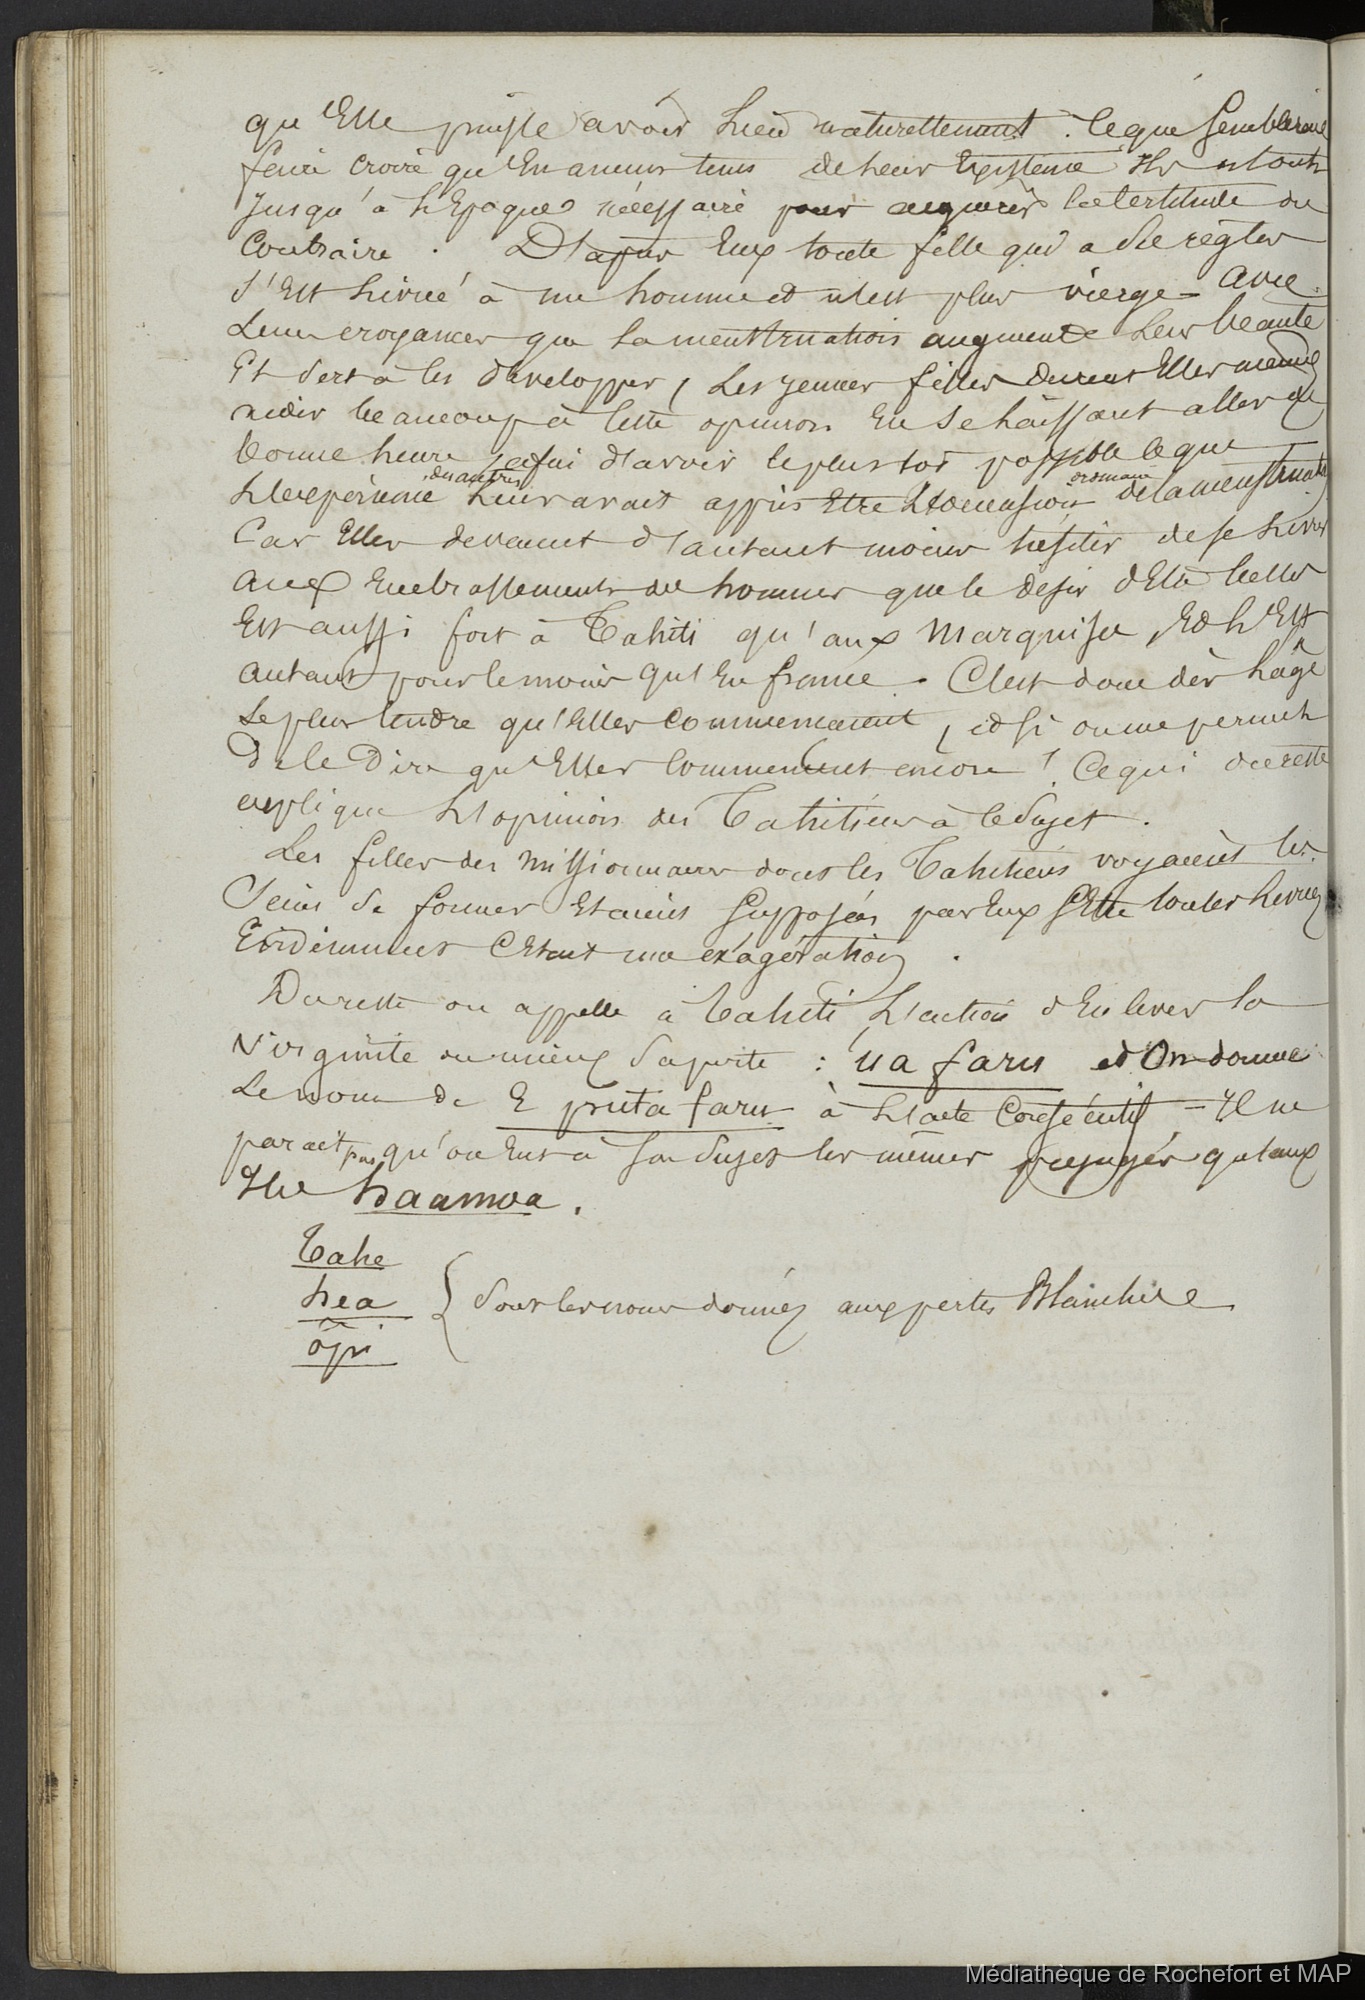 qu'Elle puisse avoir Lieu naturellement. Ce que Semblerait
faire croire qu'En aucun tems de Leur Existence Ils n'ont
Jusqu'à L'Epoque nécessaire pour acquérir la certitude du
Contraire. D'après Eux toute fille qui a Ses règles
S'Est Livrée à un homme et n'est plus vierge - avec
Leur croyance que la menstruation augmente Leur beauté
Et Sert à les développer, Les jeunes filles durent Elles mêmes
aider beaucoup à Cette opinion En Se Laissant aller de
bonne heure, afin d'avoir le plus tôt possible ce que
des autres ordinaire
L'Expérience Leur avait appris Etre L'occasion de la menstruation
Car Elles devaient d'autant moins hésiter de se Livrer
aux Embrassements des hommes que le desir d'Etre belles
Est aussi fort à Tahiti qu'aux Marquises, Et L'Est
autant pour le moins qu'En france. C'est donc dès L'âge
Le plus tendre qu'Elles commencaient, et si on me permet
de le Dire qu'Elles Commencent encore! Ce qui du reste
explique L'opinion des Tahitiens à ce Sujet.
Les filles des Missionnaires dont les Tahitiens voyaient les
Seins Se former Etaient Supposées par Eux S'Etre toutes Livrées
Evidemment C'Etait une exagération.
Du reste on appelle à Tahiti L'action d'Enlever la
Virginité ou mieux Sa perte : ua faru et On donne
Le nom de E puta faru à L'acte Consécutif - Il ne
parait pas qu'on Eut à Son Sujet les mêmes préjugés qu'aux
Iles haamoa.
Tahe
hea
opi
{ Sont les noms donnés aux pertes Blanches
Médiathèque de Rochefort et MAP